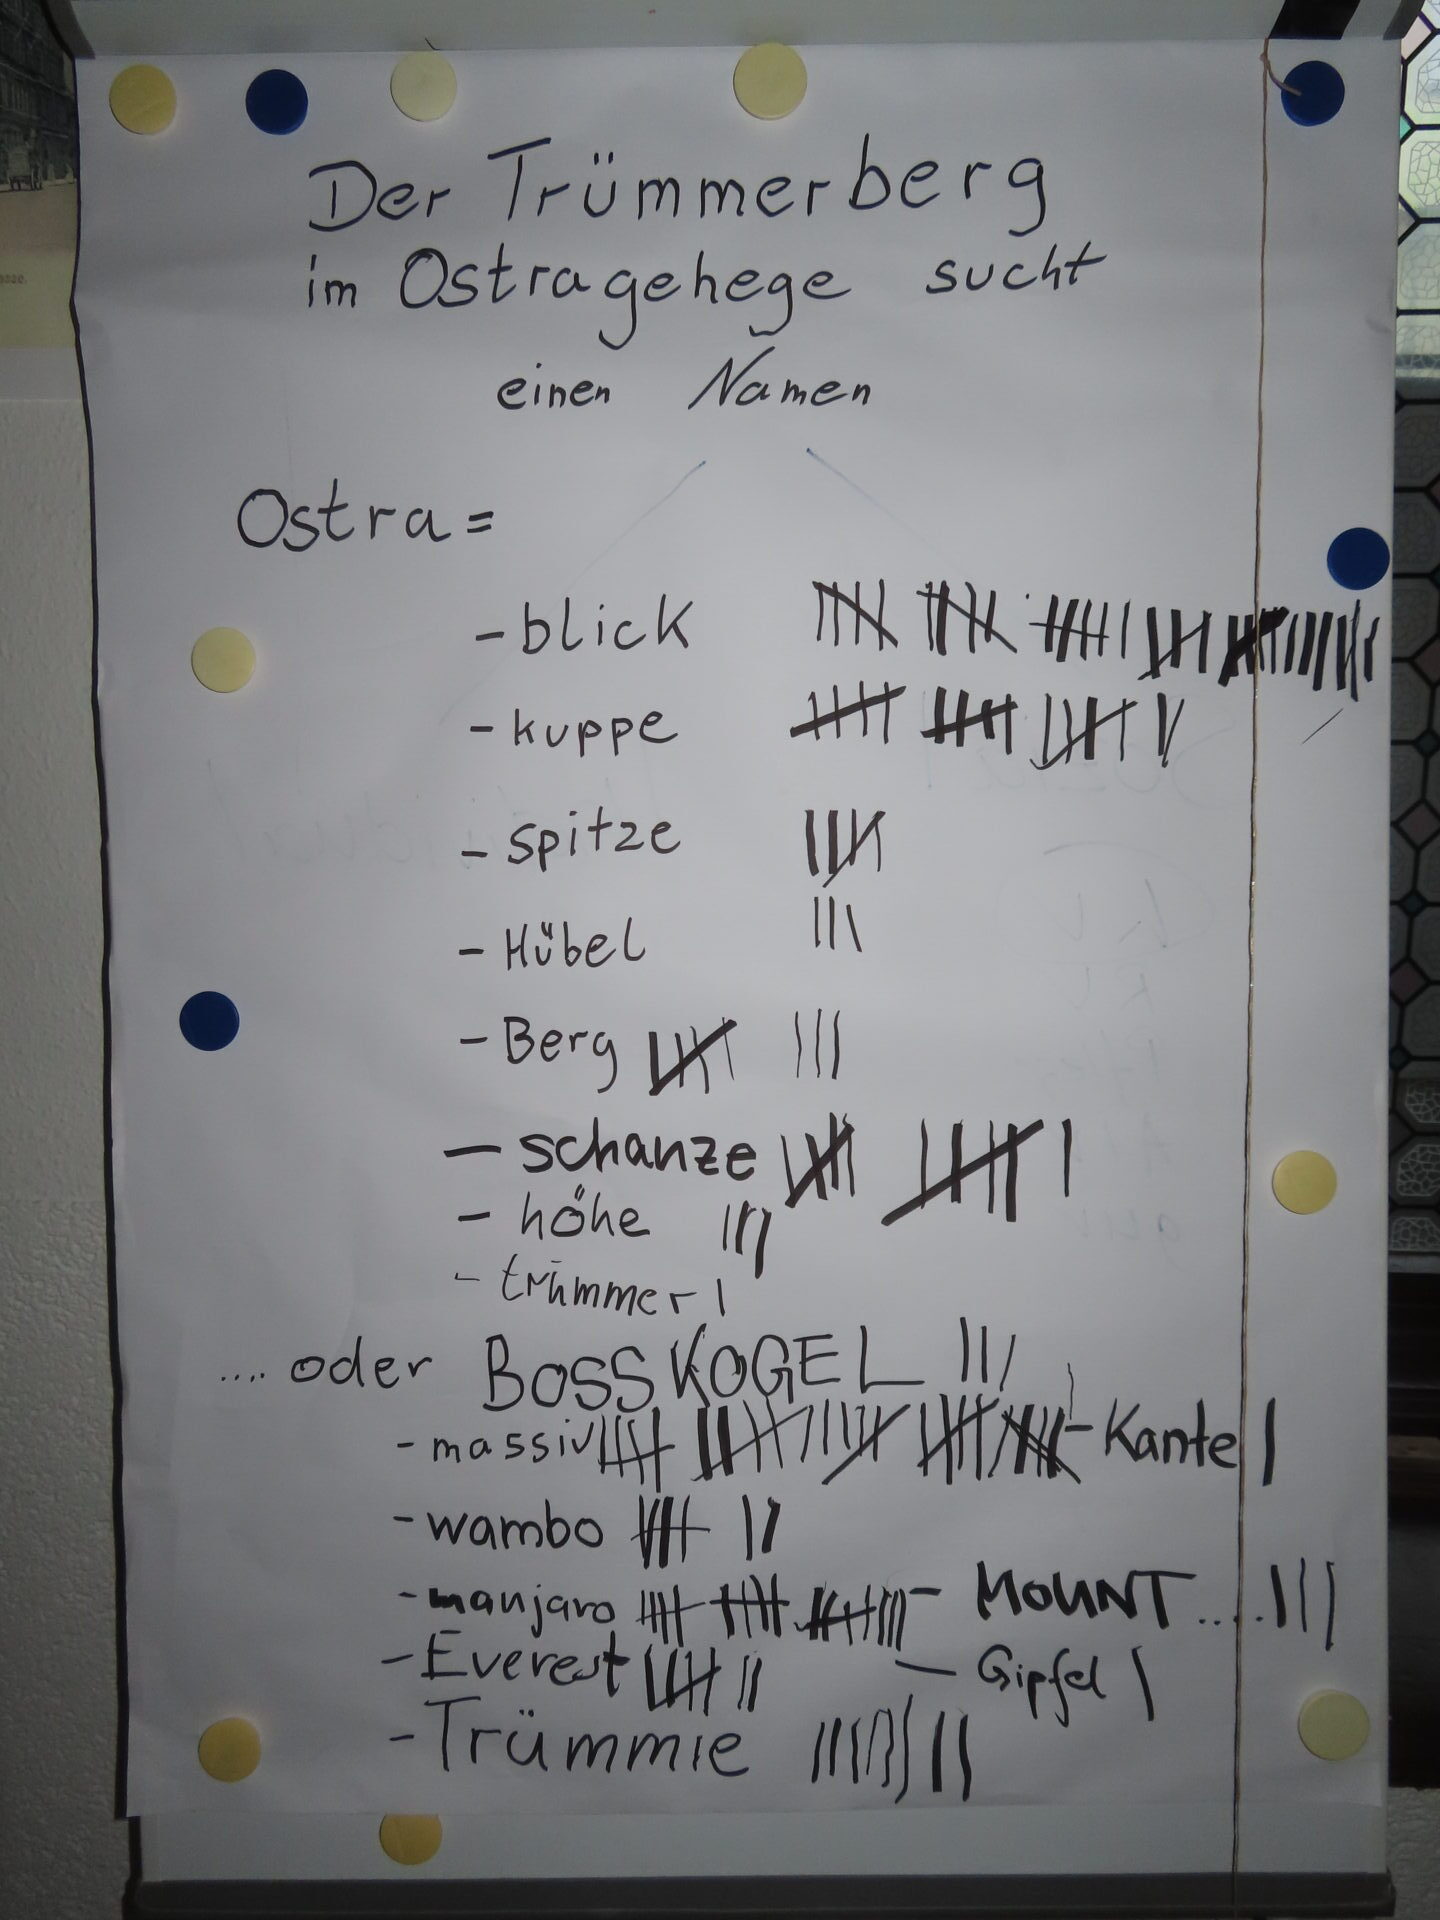 Der Trümmerberg
im Ostragehege sucht
einen Namen
Ostra=
- blick
- kuppe
- spitze
- Hübel
- Berg
- schanze
- höhe
- trümmer
.... oder BOSSKOGEL
- massiv - Kante
- wambo
- manjaro - MOUNT....
- Everest - Gipfel
- Trümmie